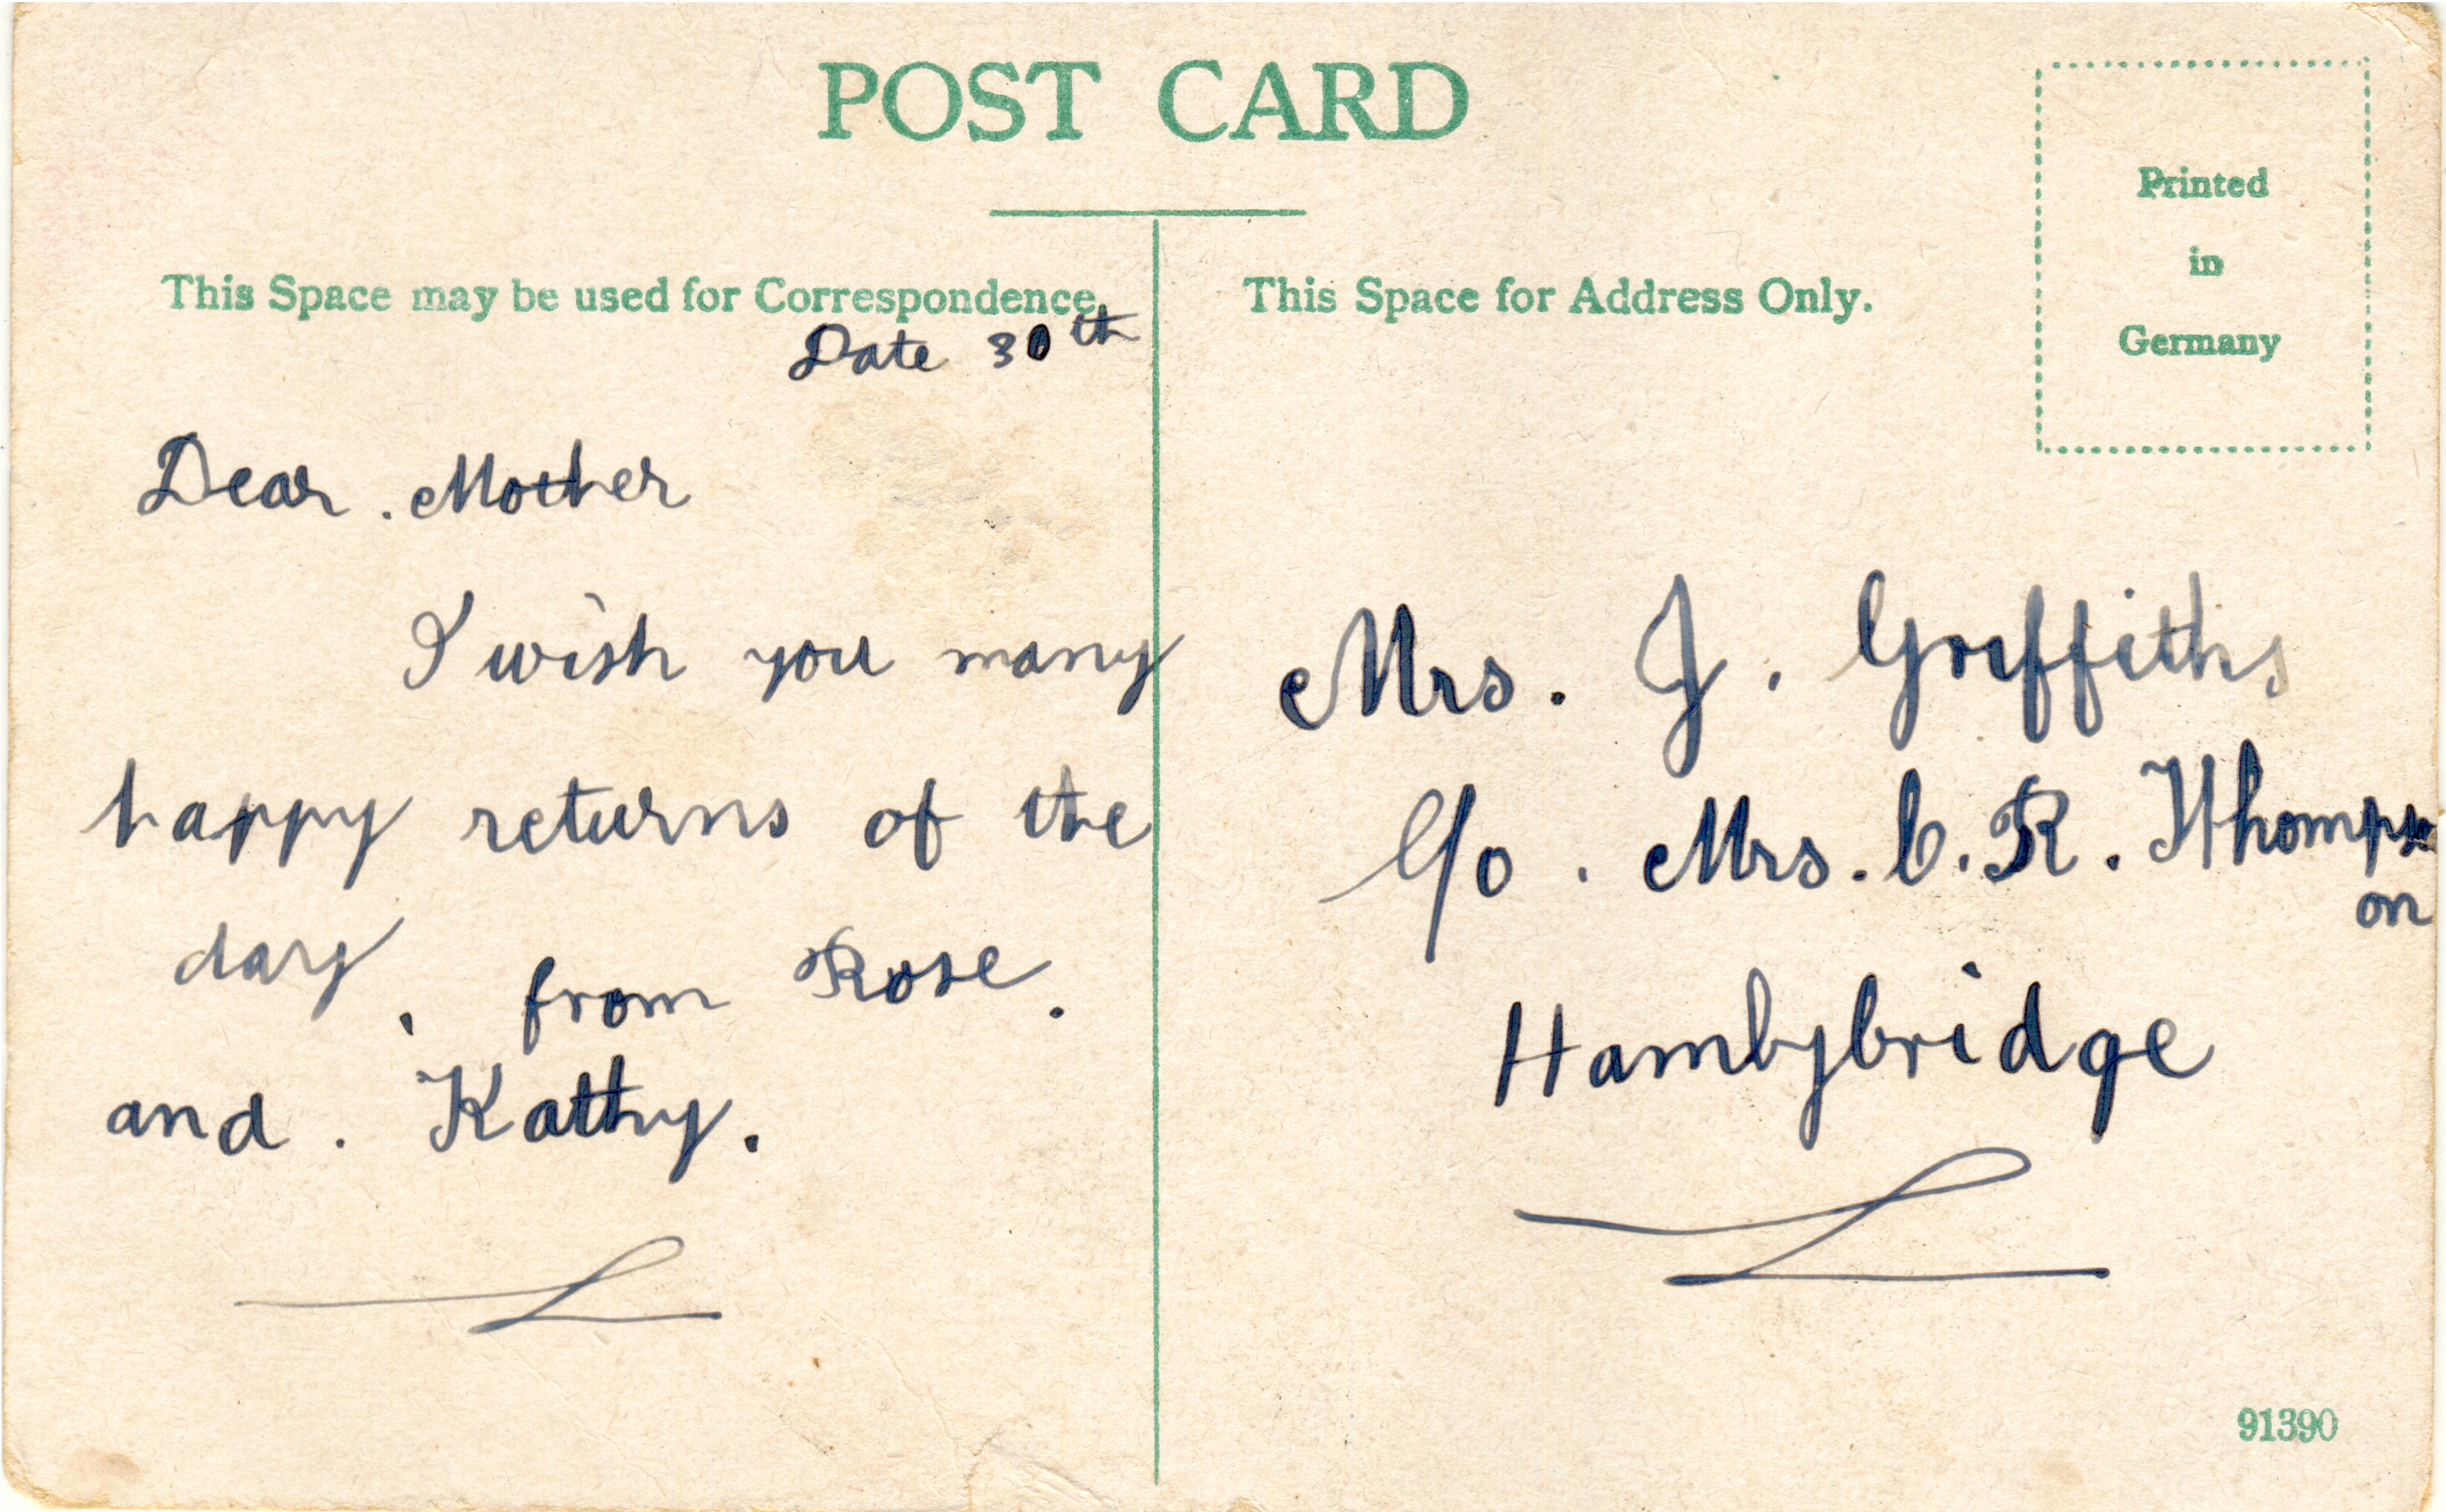 POST CARD
This Space may be used for Correspondence.
Date 30th
Dear . Mother
I wish you many
happy returns of the
day, from Rose.
and . Kathy.
This Space for Address Only.
Printed
in
Germany
Mrs. J. Griffiths
C/o . Mrs. C. R. Thomps
on
Hambybridge
91390